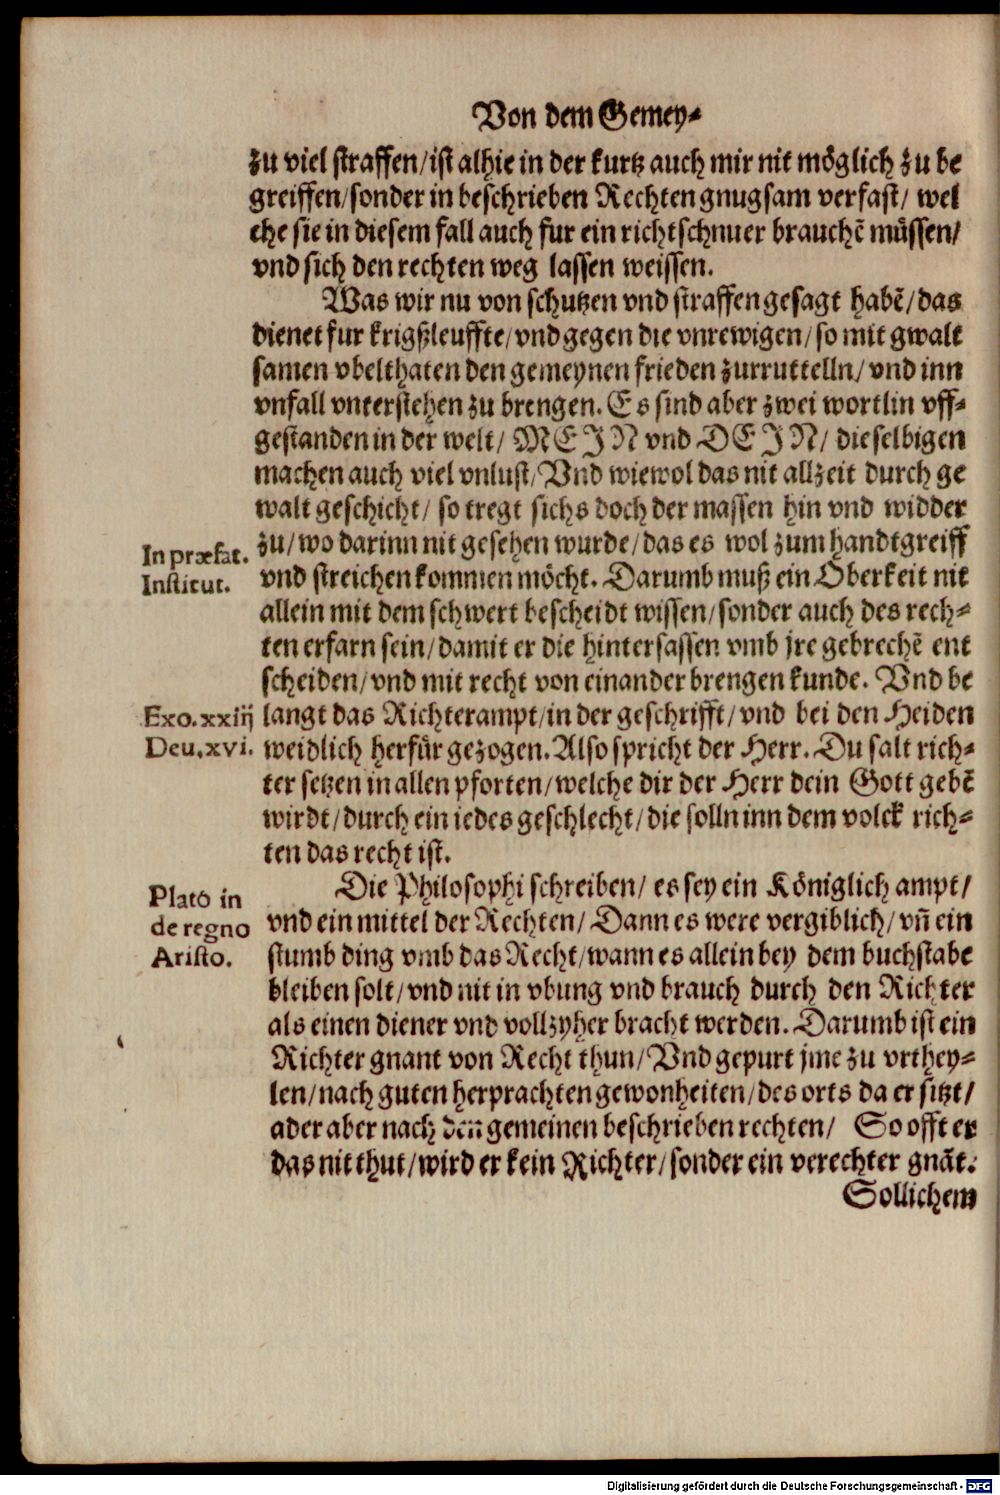 Von dem Gemey⸗
zu viel straffen/ist alhie in der kurtz auch mir nit möglich zu be
greiffen/sonder in beschrieben Rechten gnugsam verfast/ wel
che sie in diesem fall auch fur ein richtschnuer brauchẽ müssen/
vnd sich den rechten weg lassen weissen.
Was wir nu von schutzen vnd straffen gesagt habẽ/das
dienet fur krigßleuffte/vnd gegen die vnrewigen/so mit gwalt
samen vbelthaten den gemeynen frieden zurruttelln/vnd inn
vnfall vnterstehen zu brengen. Es sind aber zwei wortlin vff⸗
gestanden in der welt/ MEJN vnd DEJN/ dieselbigen
machen auch viel vnlust/Vnd wiewol das nit allzeit durch ge
walt geschicht/ so tregt sichs doch der massen hin vnd widder
In præfat.
Institut.
zu/wo darinn nit gesehen wurde/das es wol zum handtgreiff
vnd streichen kommen möcht. Darumb muß ein Oberkeit nit
allein mit dem schwert bescheidt wissen/sonder auch des rech⸗
ten erfarn sein/damit er die hintersassen vmb jre gebrechẽ ent
scheiden/vnd mit recht von einander brengen kunde. Vnd be
Exo.xxiij
Deu.xvi.
langt das Richterampt/in der geschrifft/vnd bei den Heiden
weidlich herfür gezogen. Also spricht der Herr. Du salt rich⸗
ter setzen in allen pforten/welche dir der Herr dein Gott gebẽ
wirdt/durch ein iedes geschlecht/die solln inn dem volck rich⸗
ten das recht ist.
Plato in
de regno
Aristo.
Die Philosophi schreiben/ es sey ein Königlich ampt/
vnd ein mittel der Rechten/ Dann es were vergiblich/vñ ein
stumb ding vmb das Recht/wann es allein bey dem buchstabe
bleiben solt/vnd nit in vbung vnd brauch durch den Richter
als einen diener vnd vollzyher bracht werden. Darumb ist ein
Richter gnant von Recht thun/Vnd gepurt jme zu vrthey⸗
len/nach guten herprachten gewonheiten/des orts da er sitzt/
ader aber nach den gemeinen beschrieben rechten/ So offt er
das nit thut/wird er kein Richter/sonder ein verechter gnãt.
Sollichem
Digitalisierung gefördert durch die Deutsche Forschungsgemeinschaft - DFG